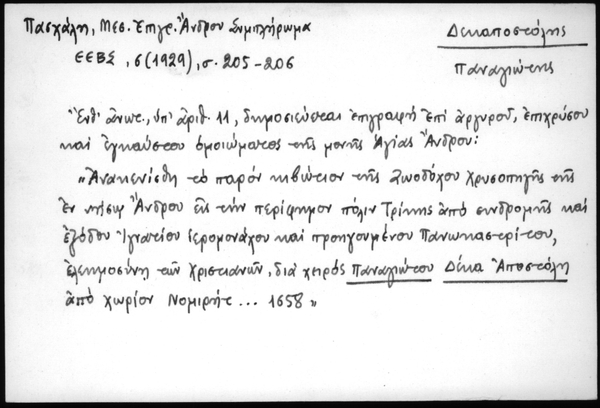 Πασχάλη, Μεσ. Ἐπιγρ. Ἄνδρου Συμπλήρωμα
ΕΕΒΣ, 6 (1929), σ. 205-206
Δεκαποστόλης
Παναγιώτης
Ἔνθ' ἄνωτ., ὑπ' ἀριθ. 11, δημοσιεύεται ἐπιγραφή ἐπί ἀργυροῦ, ἐπιχρύσου
καί ἐγκαύστου ὁμοιώματος τῆς μονῆς Ἁγίας Ἄνδρου:
"Ἀνακενίσθη τό παρόν κιβώτιον τῆς Ζωοδόχου Χρυσοπηγῆς τῆς
ἐν νήσῳ Ἄνδρου εἰς τήν περίφημον πόλιν Τρίκης ἀπό συνδρομῆς καί
ἐξόδου Ἰγνατίου ἱερομονάχου καί προηγουμένου Πανωκαστρίτου,
ἐλεημοσύνη τῶν Χριστιανῶν, διά χειρός Παναγιώτου Δέκα Ἀποστόλη
ἀπό χωρίον Νομιρῆτζ ... 1658"